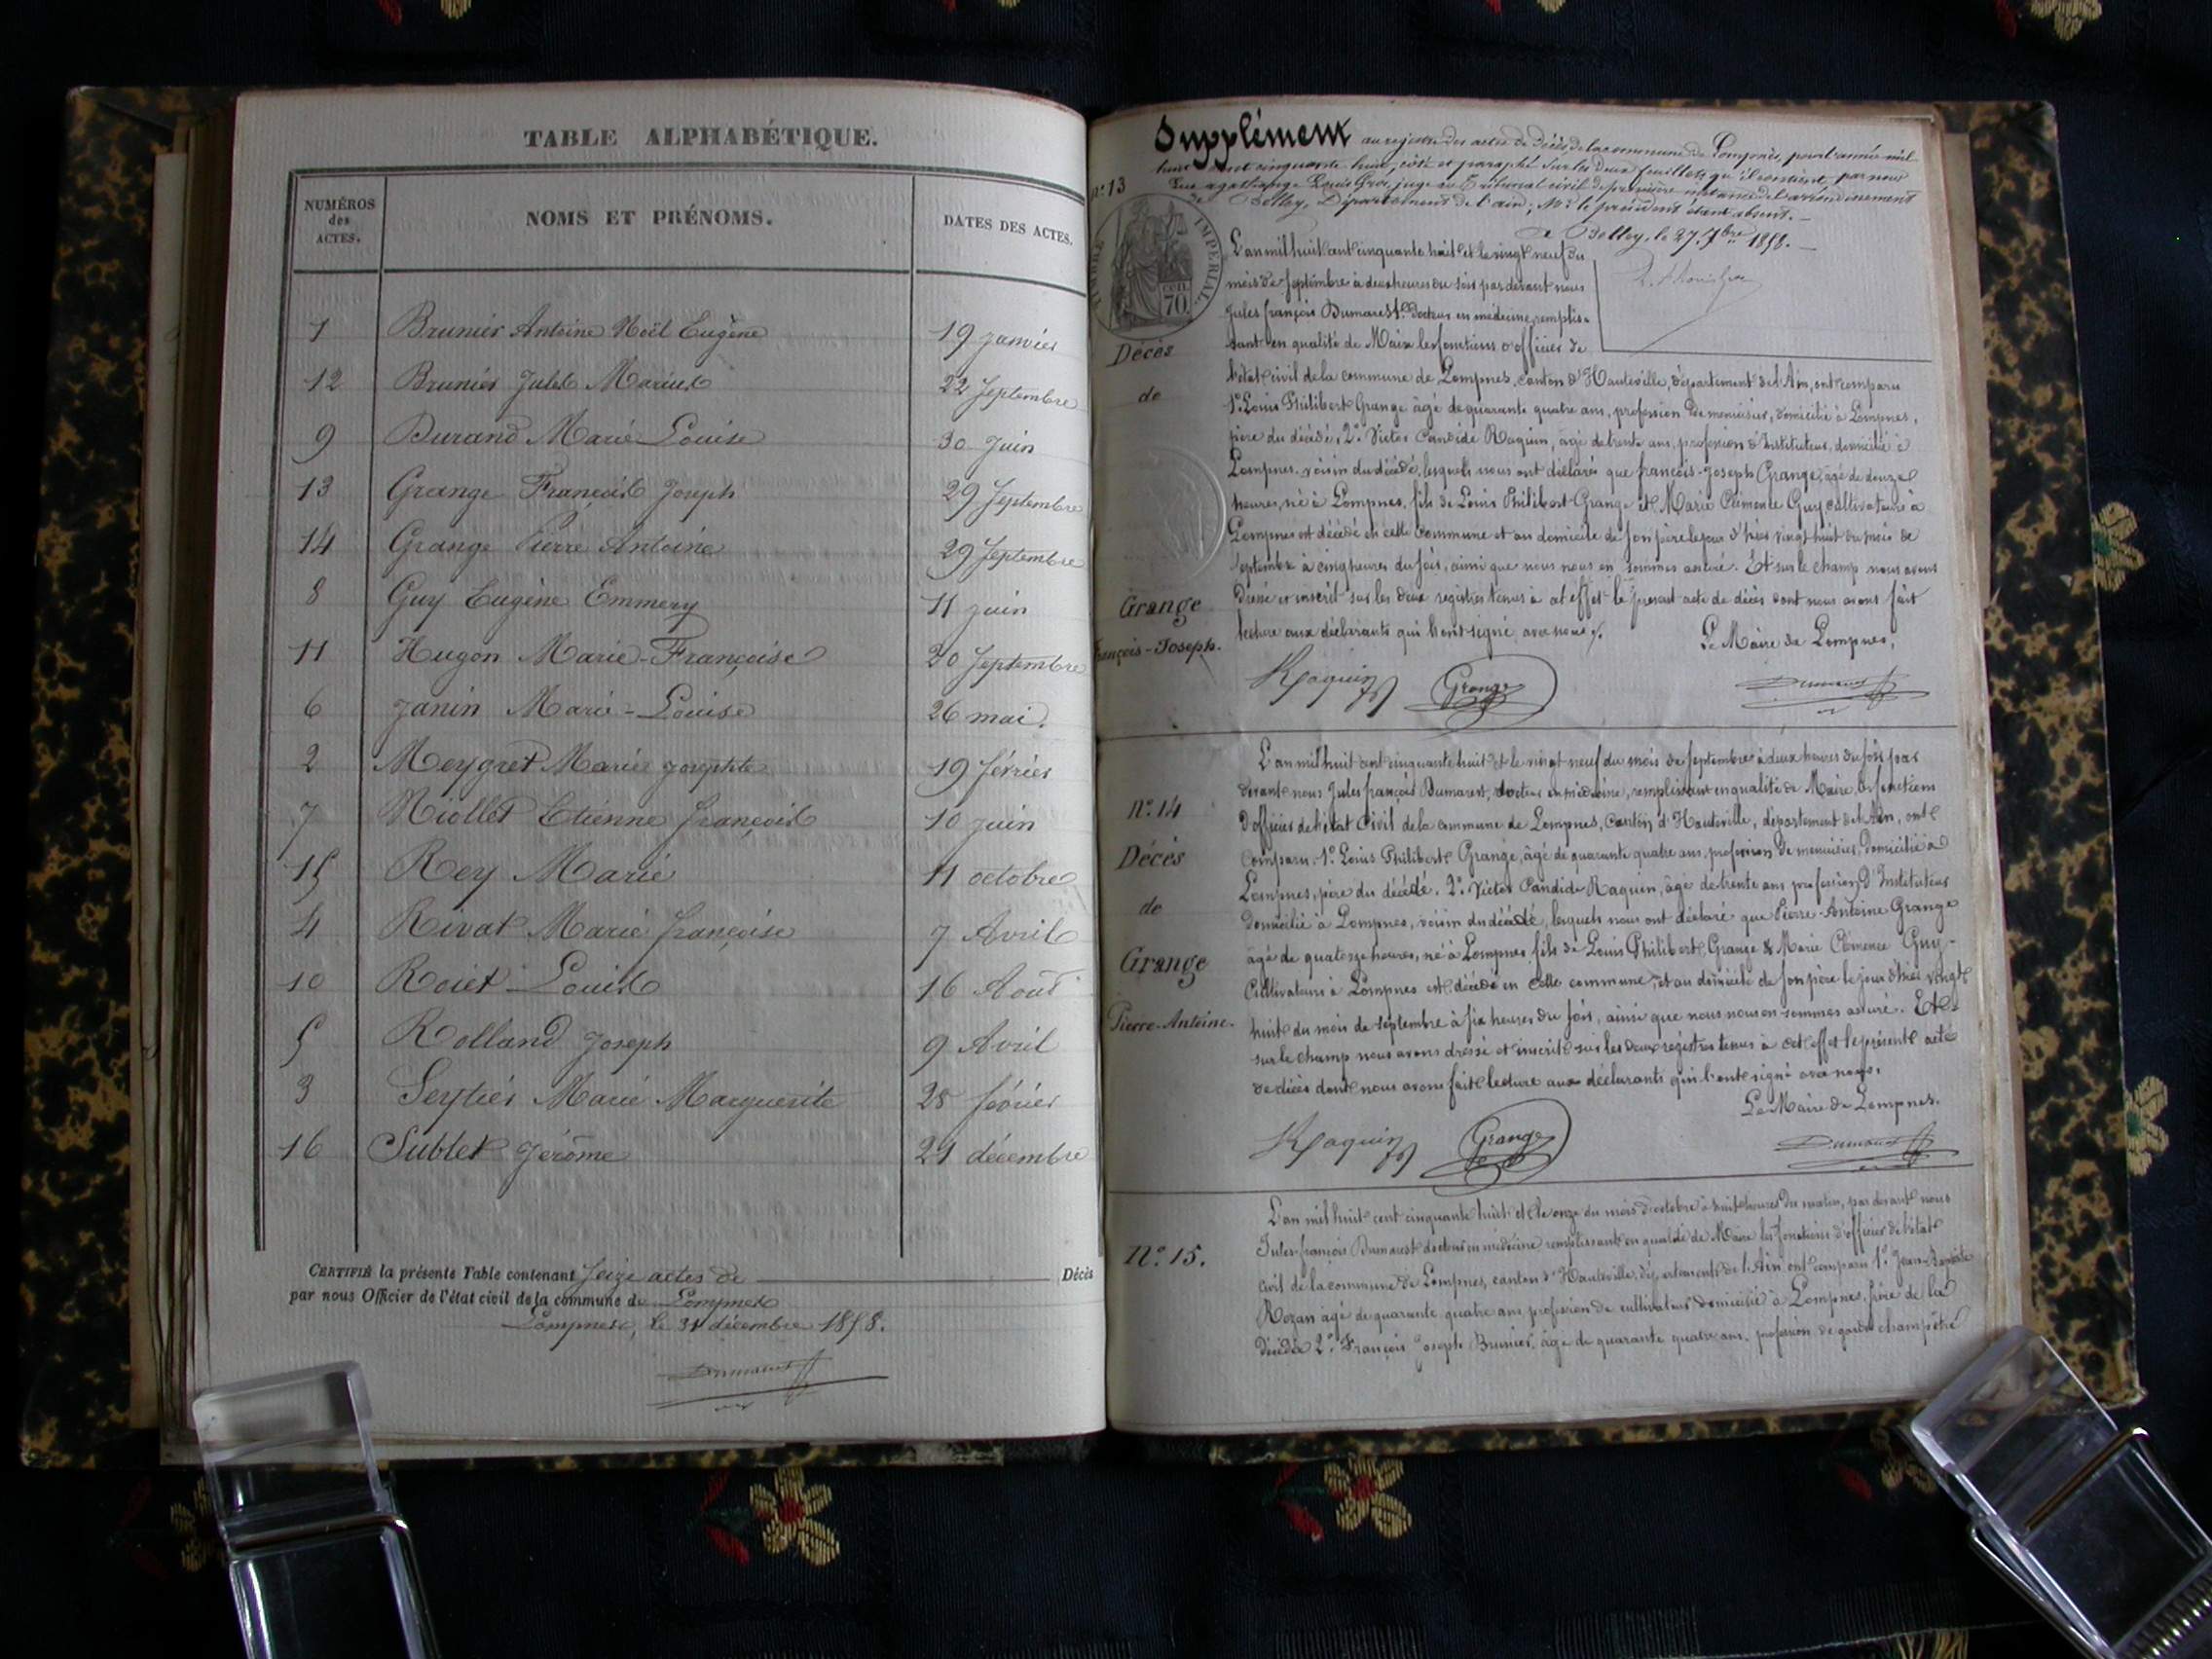 TABLE ALPHABÉTIQUE.
NUMÉROS des ACTES.
NOMS ET PRÉNOMS.
DATES DES ACTES.
1 Brunier Antoine Noël Eugène 19 janvier
12 Brunier Jules Marius 22 Septembre
9 Durand Marie Louise 30 Juin
13 Grange François Joseph 29 Septembre
14 Grange Pierre Antoine 29 Septembre
8 Guy Eugène Emmery 11 juin
11 Hugon Marie-Françoise 20 Septembre
6 Janin Marie-Louise 26 mai.
2 Meygret Marie Josephte 19 février
7 Niollet Etienne François 10 juin
15 Rey Marie 11 octobre
4 Rivat Marie françoise 7 Avril
10 Roiet Louis 16 Aout
5 Rolland Joseph 9 Avril
3 Seytier Marie Marguerite 28 février
16 Sublet Jérôme 21 décembre
CERTIFIÉ la présente Table contenant Seize actes de Décès
par nous Officier de l'état civil de la commune de Lompnes
Lompnes, le 31 décembre 1858.
Dumarest
Supplément au registre des actes de décès de la commune de Lompnes, pour l'année mil
huit cent cinquante huit, côté et paraphé sur les deux feuillets qu'il contient, par nous
Louis Gros, juge au Tribunal civil de première instance de l'arrondissement
de Belley, Département de l'ain; Mr le président étant absent.
à Belley, le 27 7bre 1858.
n° 13
TIMBRE IMPÉRIAL
CEN. 70
Décès
de
Grange
François-Joseph.
L'an mil huit cent cinquante huit et le vingt neuf du
mois de Septembre à deux heures du soir par devant nous
Jules françois Dumarest Docteur en médecine, remplis-
sant en qualité de Maire les fonctions d'officier de
l'état civil de la commune de Lompnes, canton d'Hauteville, département de l'Ain, ont comparu
1° Louis Philibert Grange âgé de quarante quatre ans, profession de menuisier, domicilié à Lompnes,
père du décédé, 2° Victor Candide Raquin, âgé de trente ans, profession d'Instituteur, domicilié à
Lompnes, voisin du décédé, lesquels nous ont déclaré que françois-Joseph Grange, âgé de douze
heures, né à Lompnes, fils de Louis Philibert Grange et Marie Clémence Guy cultivateurs à
Lompnes est décédé en cette commune et au domicile de son père le jour d'hier vingt huit du mois de
Septembre à cinq heures du soir, ainsi que nous nous en sommes assuré. Et sur le champ nous avons
dressé et inscrit sur les deux registres tenus à cet effet le présent acte de décès dont nous avons fait
lecture aux déclarants qui l'ont signé avec nous.
Le Maire de Lompnes,
Raquin Grange Dumarest
N° 14
Décès
de
Grange
Pierre-Antoine.
L'an mil huit cent cinquante huit et le vingt neuf du mois de Septembre à deux heures du soir par
devant nous Jules françois Dumarest, docteur en médecine, remplissant en qualité de Maire, les fonctions
d'officier de l'état Civil de la commune de Lompnes, Canton d'Hauteville, département de l'Ain, ont
Comparu, 1° Louis Philibert Grange, âgé de quarante quatre ans, profession de menuisier, domicilié à
Lompnes, père du décédé. 2° Victor Candide Raquin, âgé de trente ans profession d'Instituteur
domicilié à Lompnes, voisin du décédé, lesquels nous ont déclaré que Pierre-Antoine Grange
âgé de quatorze heures, né à Lompnes fils de Louis Philibert Grange & Marie Clémence Guy-
Cultivateurs à Lompnes est décédé en cette commune, et au domicile de son père le jour d'hier vingt
huit du mois de septembre à six heures du soir, ainsi que nous nous en sommes assuré. Et
sur le champ nous avons dressé et inscrit sur les deux registres tenus à cet effet le présent acte
de décès dont nous avons fait lecture aux déclarants qui l'ont signé avec nous.
Le Maire de Lompnes.
Raquin Grange Dumarest
N° 15.
L'an mil huit cent cinquante huit et le onze du mois d'octobre à huit heures du matin, par devant nous
Jules-françois Dumarest docteur en médecine remplissant en qualité de Maire les fonctions d'officier de l'état
civil de la commune de Lompnes, canton d'Hauteville, département de l'Ain ont comparu 1° Jean-Baptiste
Rozan âgé de quarante quatre ans profession de cultivateur domicilié à Lompnes, frère de la
décédée 2° François Joseph Brunier, âgé de quarante quatre ans, profession de garde champêtre